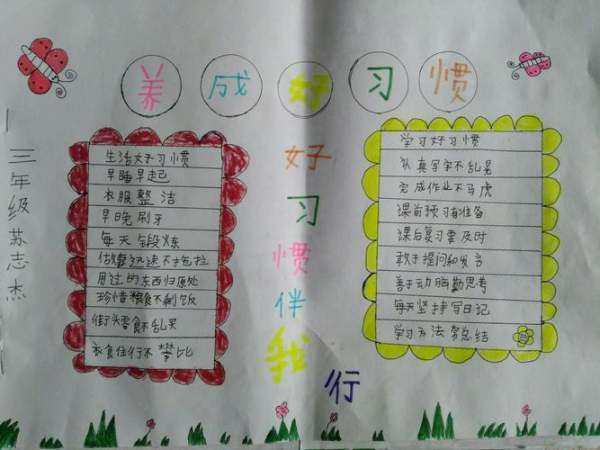 养成好习惯
三年级苏志杰
生活好习惯
早睡早起
衣服整洁
早晚刷牙
每天锻炼
做事迅速不拖拉
用过的东西归原处
珍惜粮食不剩饭
街头零食不乱买
衣食住行不攀比
好习惯伴我行
学习好习惯
认真写字不乱写
完成作业不马虎
课前预习有准备
课后复习要及时
敢于提问和发言
善于动脑勤思考
每天坚持写日记
学习方法常总结